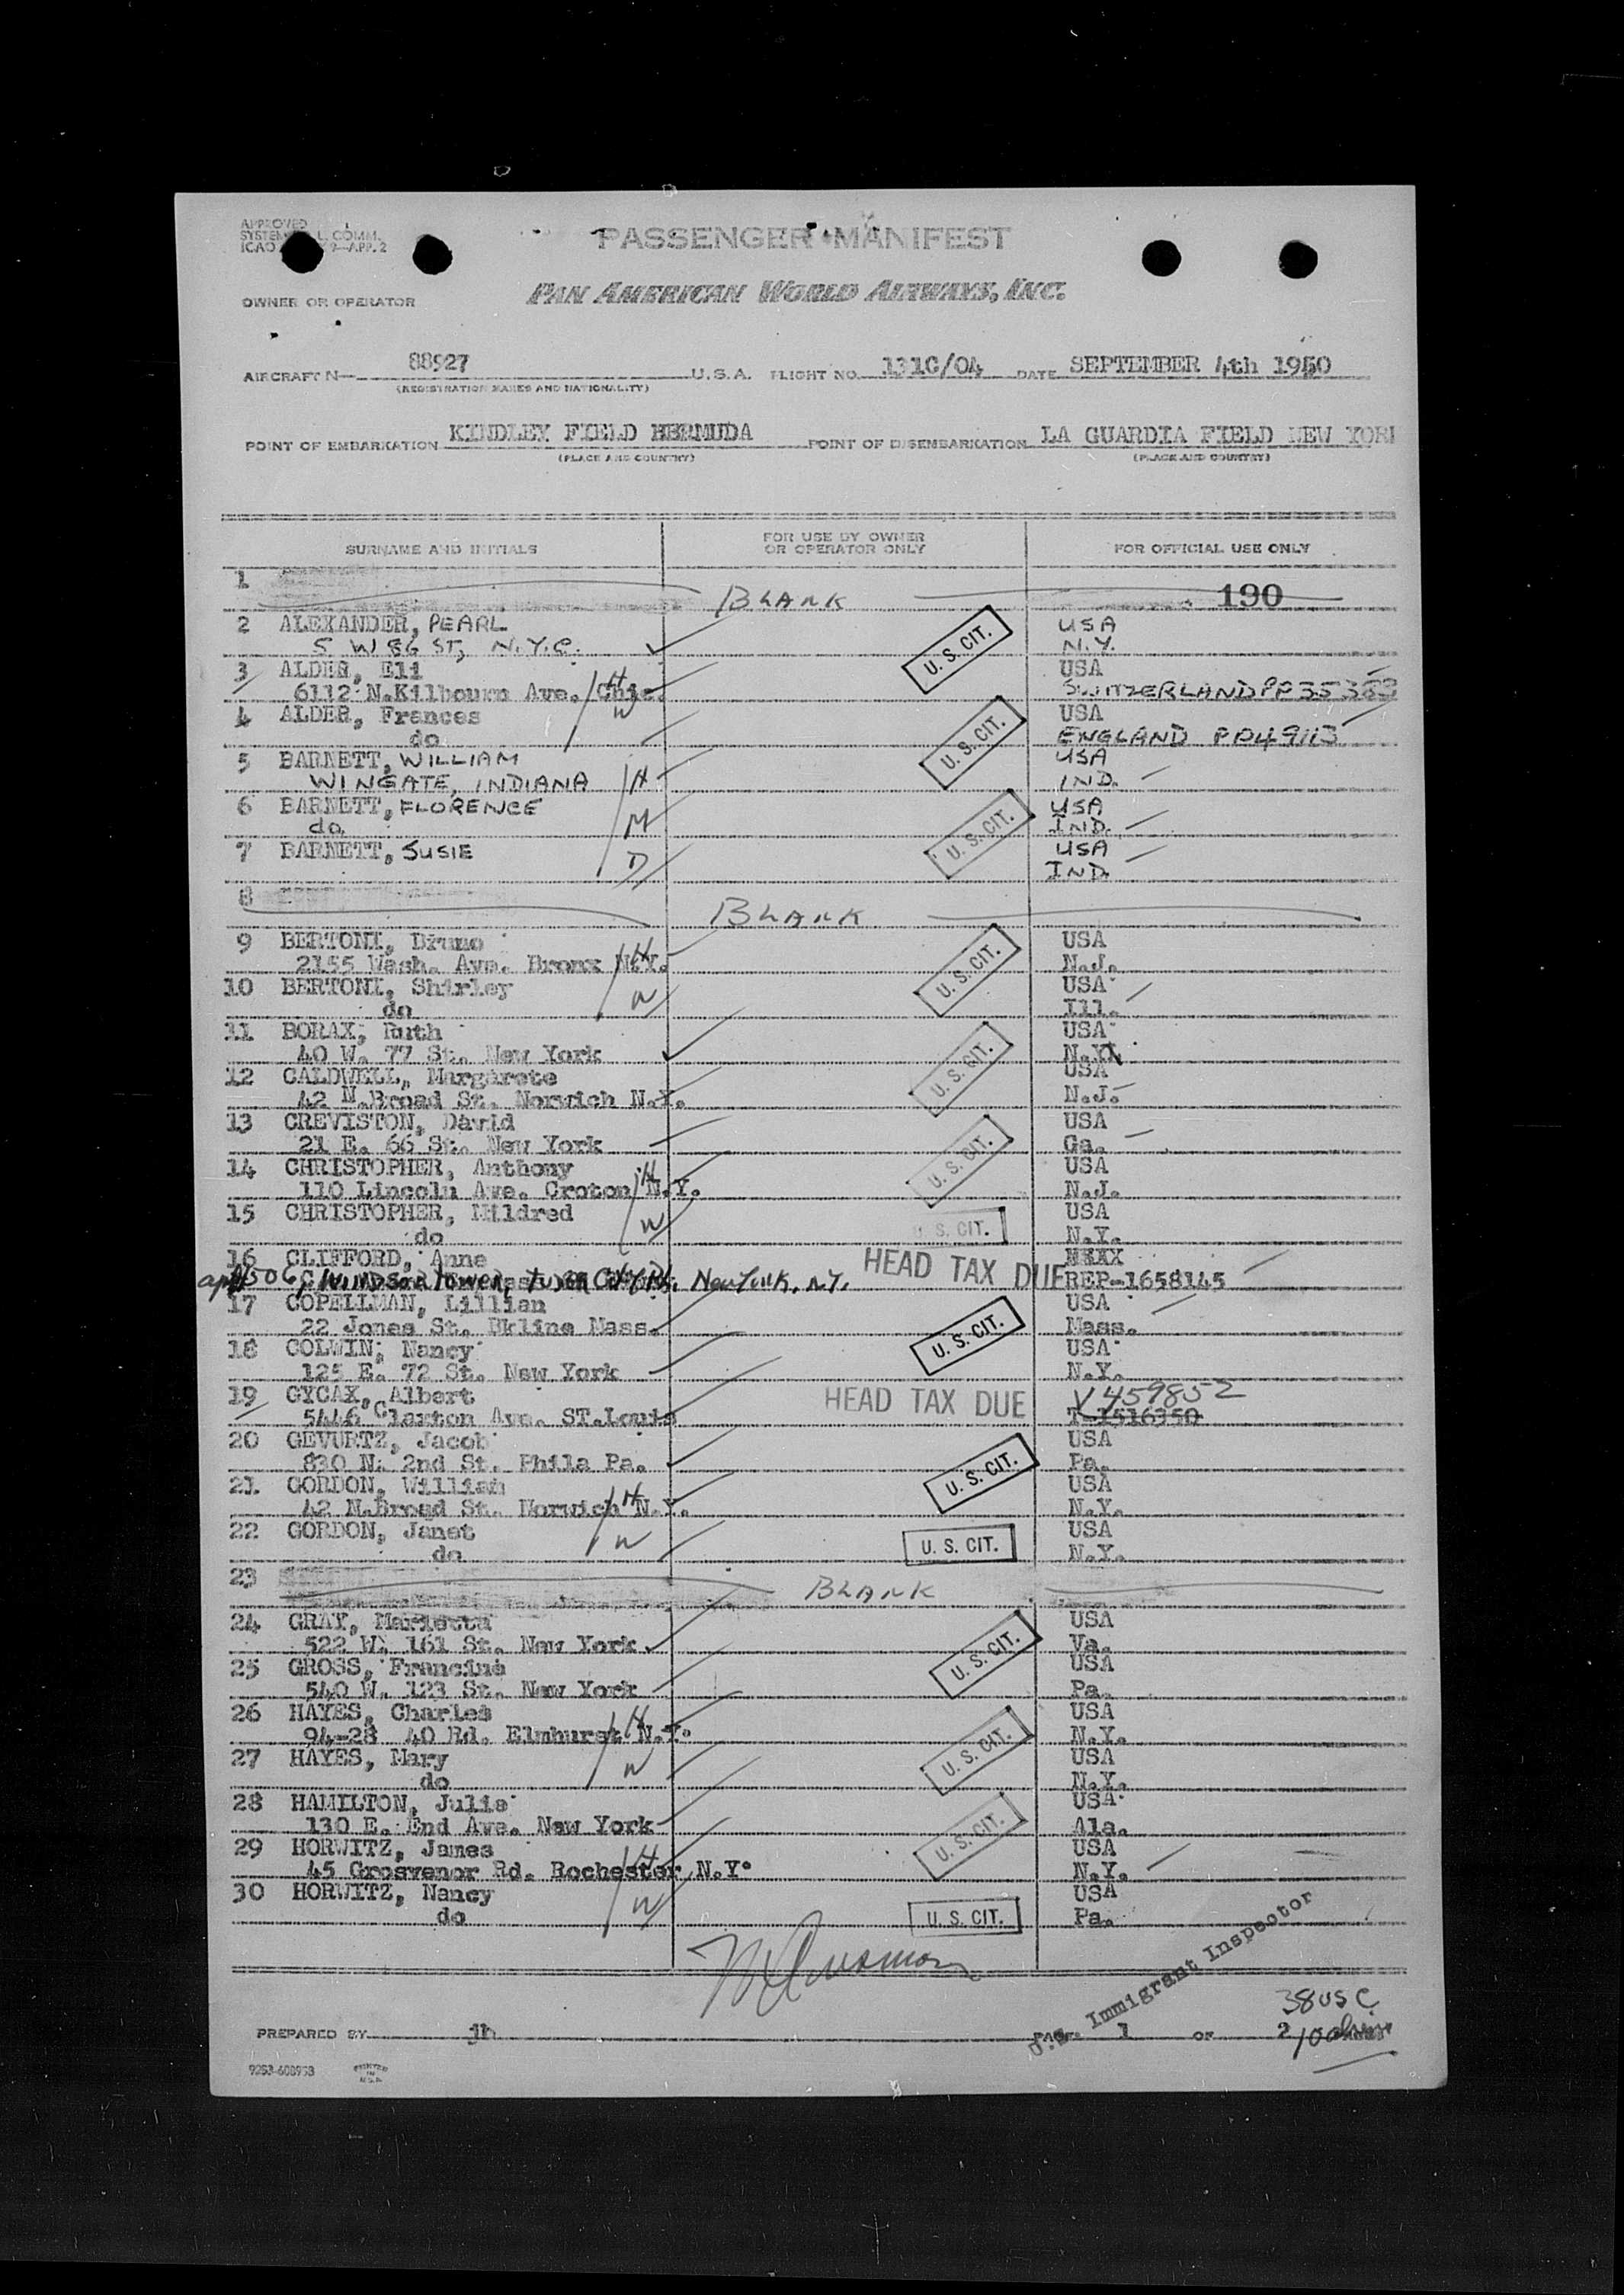 APPROVED
PASSENGER MANIFEST
PAN AMERICAN WORLD AIRWAYS, INC.
OWNER OR OPERATOR
AIRCRAFT N— 88927 U.S.A. FLIGHT NO. 131C/04 DATE SEPTEMBER 4th 1950
(REGISTRATION MARKS AND NATIONALITY)
POINT OF EMBARKATION KINDLEY FIELD BERMUDA POINT OF DISEMBARKATION LA GUARDIA FIELD NEW YORK
(PLACE AND COUNTRY) (PLACE AND COUNTRY)
SURNAME AND INITIALS FOR USE BY OWNER OR OPERATOR ONLY FOR OFFICIAL USE ONLY
1 BLANK 190
2 ALEXANDER, PEARL USA
5 W 86 ST, N.Y.C. U. S. CIT. N.Y.
3 ALDER, Eli H USA
6112 N.Kilbourn Ave. Chic. SWITZERLAND PP 35383
4 ALDER, Frances W U. S. CIT. USA
do ENGLAND PP 49113
5 BARNETT, WILLIAM USA
WINGATE, INDIANA H IND.
6 BARNETT, FLORENCE USA
do U. S. CIT. IND.
7 BARNETT, SUSIE D USA
IND.
8 BLANK
9 BERTONI, Bruno H USA
2155 Wash. Ave. Bronx N.Y. U. S. CIT. N.J.
10 BERTONI, Shirley W USA
do Ill.
11 BORAX, Ruth USA
40 W. 77 St. New York U. S. CIT. N.Y.
12 CALDWELL, Margarete USA
42 N.Broad St. Norwich N.Y. N.J.
13 CREVISTON, David USA
21 E. 66 St. New York U. S. CIT. Ga.
14 CHRISTOPHER, Anthony H USA
110 Lincoln Ave. Croton N.Y. N.J.
15 CHRISTOPHER, Mildred W USA
do U. S. CIT. N.Y.
16 CLIFFORD, Anne HEAD TAX DUE
Windsor Tower, New York, N.Y. REP-1658145
17 COPELLMAN, Lillian USA
22 Jones St. Bkline Mass. U. S. CIT. Mass.
18 COLWIN, Nancy USA
125 E. 72 St. New York N.Y.
19 GYCAX, Albert HEAD TAX DUE V459852
5446 Claxton Ave. ST.Louis T-1516350
20 GEVURTZ, Jacob USA
830 N. 2nd St. Phila Pa. U. S. CIT. Pa.
21 GORDON, William H USA
42 N.Broad St. Norwich N.Y. N.Y.
22 GORDON, Janet W USA
do U. S. CIT. N.Y.
23 BLANK
24 GRAY, Marietta USA
522 W. 161 St. New York U. S. CIT. Va.
25 GROSS, Francine USA
540 W. 123 St. New York Pa.
26 HAYES, Charles H USA
94-28 40 Rd. Elmhurst N.Y. U. S. CIT. N.Y.
27 HAYES, Mary W USA
do N.Y.
28 HAMILTON, Julia USA
130 E. End Ave. New York U. S. CIT. Ala.
29 HORWITZ, James H USA
45 Grosvenor Rd. Rochester N.Y. N.Y.
30 HORWITZ, Nancy W USA
do U. S. CIT. Pa.
Immigrant Inspector
38 USC
PREPARED BY jh PAGE 1 OF 2
9253-608953 PRINTED IN U.S.A.